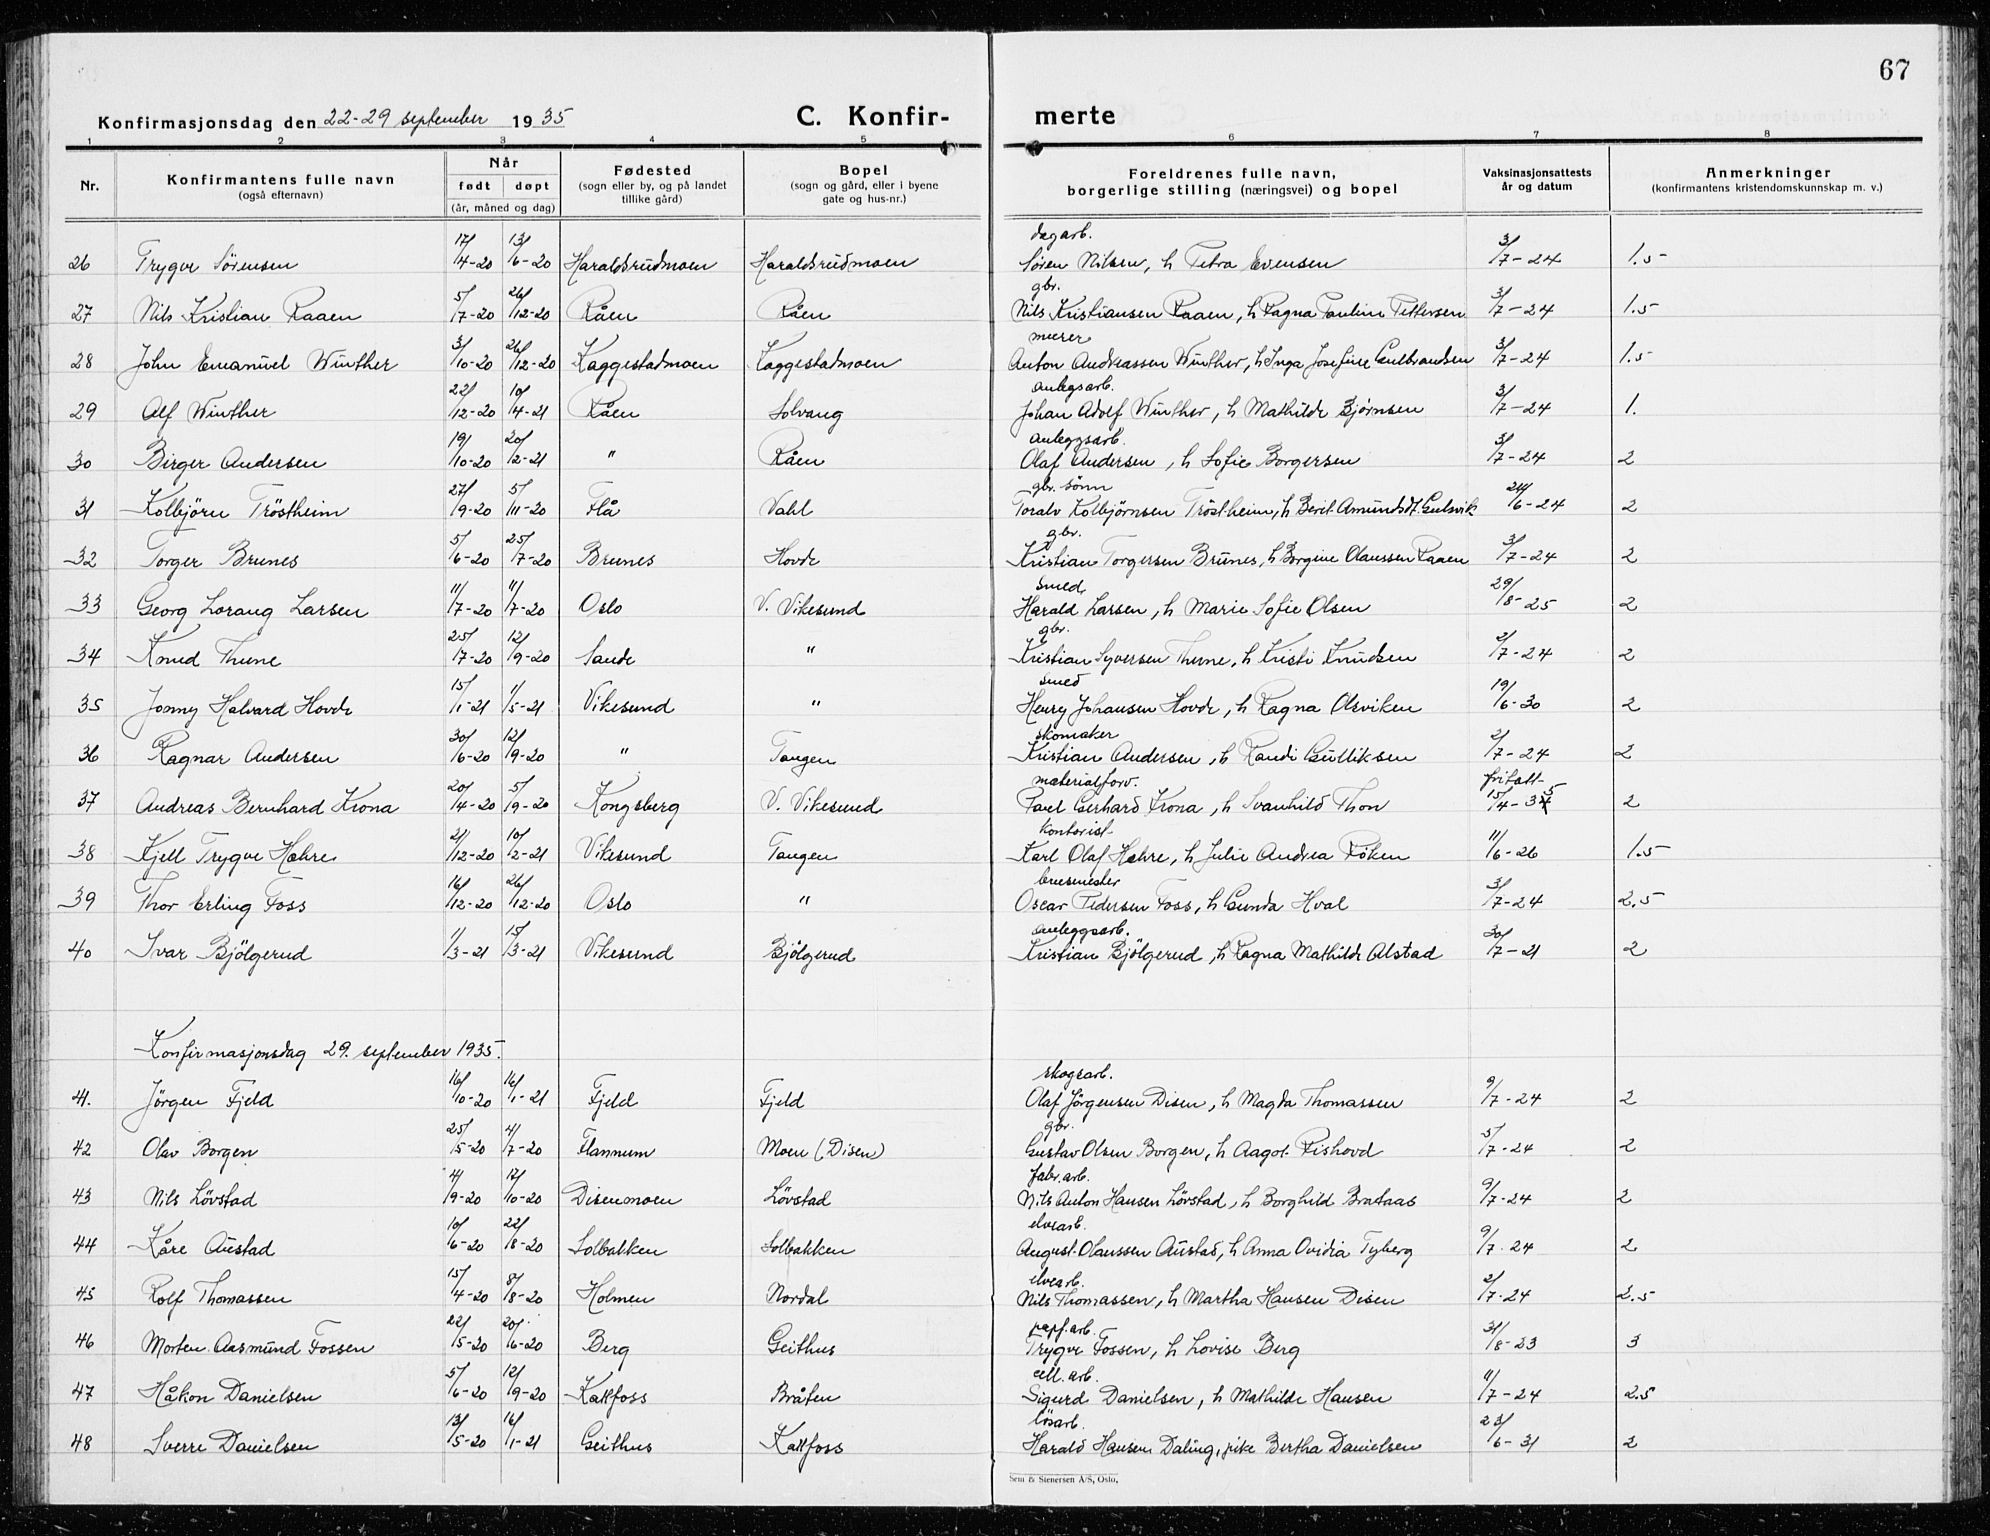 67
Konfirmasjonsdag den 22-29 september 1935 C. Konfir- merte
1 2 3 4 5 6 7 8
Nr. Konfirmantens fulle navn (også efternavn) Når født døpt (år, måned og dag) Fødested (sogn eller by, og på landet tillike gård) Bopel (sogn og gård, eller i byene gate og hus-nr.) Foreldrenes fulle navn, borgerlige stilling (næringsvei) og bopel Vaksinasjonsattests år og datum Anmerkninger (konfirmantens kristendomskunnskap m. v.)
dagarb.
26 Trygve Sörensen 17/4-20 13/6-20 Haraldsrudmoen Haraldsrudmoen Sören Nilsen, h Petra Evensen 3/7-24 1.5
gbr.
27 Nils Kristian Raaen 5/7-20 26/12-20 Råen Råen Nils Kristiansen Raaen, h Ragna Pauline Pettersen 3/7-24 1.5
murer
28 John Emanuel Winther 3/10-20 26/12-20 Kaggestadmoen Kaggestadmoen Anton Andreassen Winther, h Inga Josefine Gulbrandsen 3/7-24 1.5
anlegsarb.
29 Alf Winther 22/12-20 10/4-21 Råen Solvang Johan Adolf Winther, h Mathilde Bjørnsen 3/7-24 1.
anleggsarb.
30 Birger Andersen 19/10-20 20/2-21 " Råen Olaf Andersen, h Sofie Borgersen 3/7-24 2
gbr. sønn
31 Kolbjörn Tröstheim 27/9-20 5/11-20 Flå Vahl Toralv Kolbjörnsen Tröstheim, h Berit Amundsdt. Gulsvik 24/6-24 2
gbr.
32 Torger Brunes 5/6-20 25/7-20 Brunes Hovde Kristian Torgersen Brunes, h Borgine Olaussen Raaen 3/7-24 2
smed
33 Georg Lorang Larsen 11/7-20 11/7-20 Oslo V. Vikesund Harald Larsen, h Marie Sofie Olsen 29/8-25 2
gbr.
34 Knud Thune 25/7-20 12/9-20 Sande " Kristian Syversen Thune, h Kristi Knudsen 2/7-24 2
smed
35 Jonny Halvard Hovde 15/1-21 1/5-21 Vikesund " Henry Johansen Hovde, h Ragna Olsviken 19/6-30 2
skomaker
36 Ragnar Andersen 30/6-20 12/9-20 " Tangen Kristian Andersen, h Randi Gulliksen 2/7-24 2
materialforv. fritatt
37 Andreas Bernhard Krona 20/4-20 5/9-20 Kongsberg V. Vikesund Paul Gerhard Krona, h Svanhild Thon 15/4-35 2
kontorist
38 Kjell Trygve Hæhre 21/12-20 10/2-21 Vikesund Tangen Karl Olaf Hæhre, h Julie Andrea Röken 11/6-26 1.5
brusmester
39 Thor Erling Foss 16/12-20 26/12-20 Oslo " Oscar Pedersen Foss, h Gunda Hval 3/7-24 2.5
anleggsarb.
40 Ivar Bjölgerud 1/3-21 15/3-21 Vikesund Bjölgerud Kristian Bjölgerud, h Ragna Mathilde Alstad 30/7-21 2
Konfirmasjonsdag 29. september 1935.
skogsarb.
41. Jörgen Fjeld 16/10-20 16/1-21 Fjeld Fjeld Olaf Jörgensen Disen, h Magda Thomassen 9/7-24 2
gbr.
42 Olav Borgen 25/5-20 4/7-20 Flannum Moen (Disen) Gustav Olsen Borgen, h Aagot Rishovd 5/7-24 2
fabr.arb.
43 Nils Lövstad 4/9-20 12/10-20 Disenmoen Lövstad Nils Anton Hansen Lövstad, h Borghild Brataas 9/7-24 2
elvearb.
44 Kåre Austad 10/6-20 22/8-20 Solbakken Solbakken August Olaussen Austad, h Anna Ovidia Tyberg 9/7.24 2
elvearb.
45 Rolf Thomassen 15/4-20 8/8-20 Holmen Nordal Nils Thomassen, h Martha Hansen Disen 2/7-24 2.5
papf.arb.
46 Morten Aasmund Fossen 22/5-20 20/6-20 Berg Geithus Trygve Fossen, h Lovise Berg 31/8-23 3
cell. arb.
47 Håkon Danielsen 5/6-20 12/9-20 Kattfoss Bråten Sigurd Danielsen, h Mathilde Hansen 11/7-24 2.5
lösarb.
48 Sverre Danielsen 13/5-20 16/1-21 Geithus Kattfoss Harald Hansen Daling, pike Bertha Danielsen 23/6-31 2
Sem & Stenersen A/S, Oslo.